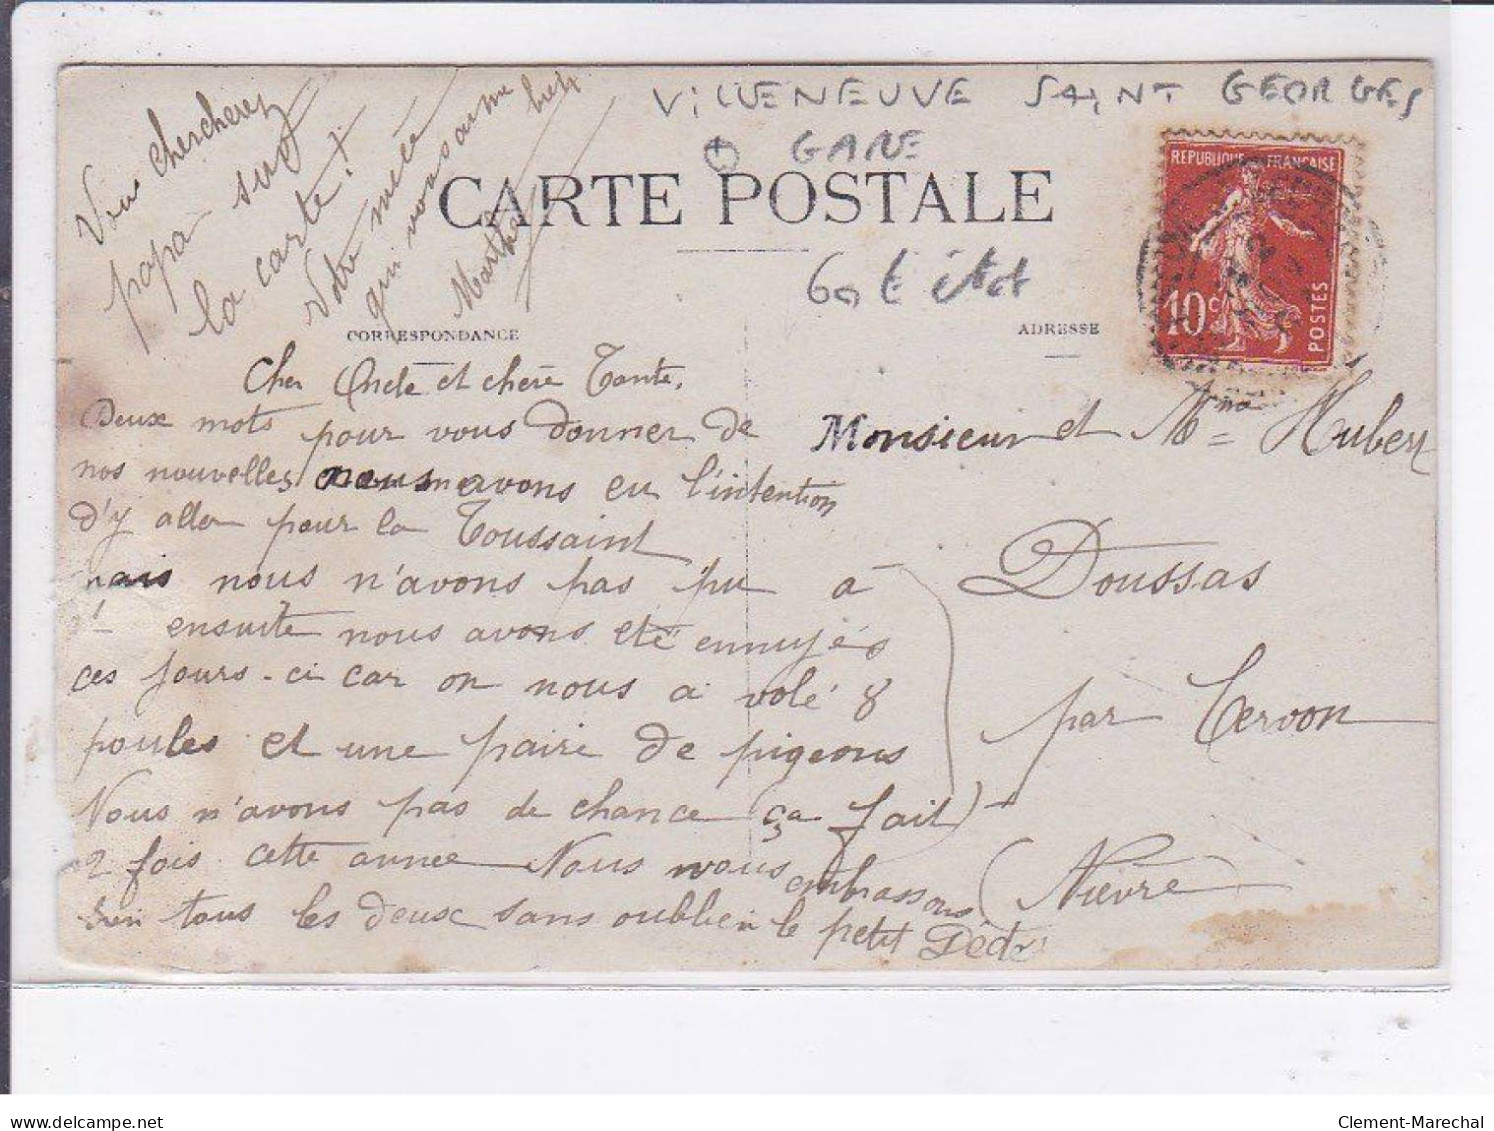 Vous chercherez
papa sur
la carte !
Votre nièce
qui vous aime bien
Marthe
VILLENEUVE SAINT GEORGES
GARE
CARTE POSTALE
60 € état
REPUBLIQUE FRANÇAISE
10c
POSTES
CORRESPONDANCE
ADRESSE
Cher Oncle et chère Tante,
Deux mots pour vous donner de
nos nouvelles, nous avons eu l'intention
d'y aller pour la Toussaint
mais nous n'avons pas pu à
ensuite nous avons été ennuyés
ces jours-ci car on nous a volé 8
poules et une paire de pigeons
Nous n'avons pas de chance (ça fait
2 fois cette année Nous vous embrassons
bien tous les deux sans oublier le petit Dédé
Monsieur et Mme Hubert
Doussas
par Cervon
(Nièvre)
delcampe.net
Clement-Marechal